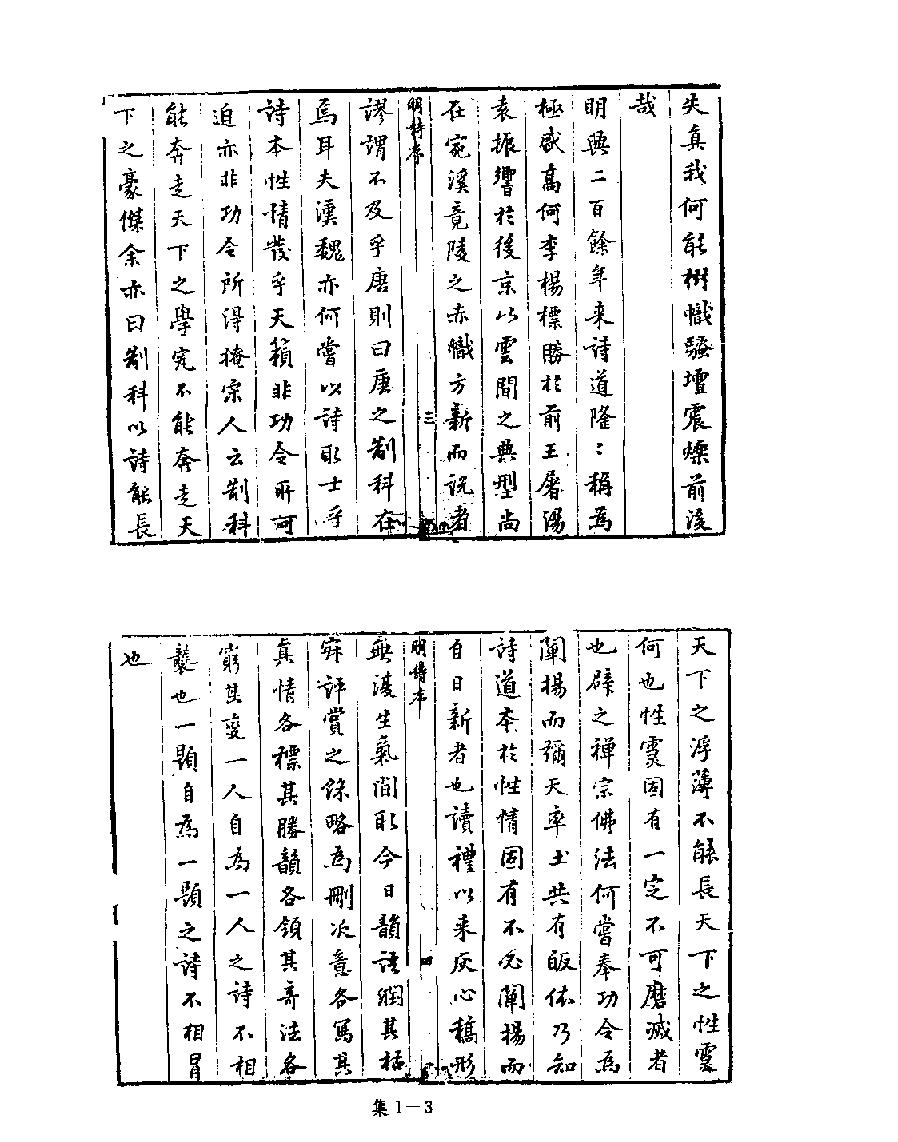 失真我何能樹幟騷壇震爍前後
哉
明興二百餘年來詩道隆〻稱為
極盛高何李楊標勝於前王屠湯
袁振響於後京以雲間之典型尚
在宛溪竟陵之赤幟方新而説者
明詩序
三
謬謂不及乎唐則曰唐之制科在
焉耳夫漢魏亦何嘗以詩取士乎
詩本性情發乎天籟非功令所可
迫亦非功令所得掩宗人云制科
能奔走天下之學究不能奔走天
下之豪傑余亦曰制科以詩能長
天下之浮薄不能長天下之性靈
何也性靈固有一定不可磨滅者
也辟之禪宗佛法何嘗奉功令為
闡揚而彌天率土共有皈依乃知
詩道本於性情固有不必闡揚而
自日新者也讀禮以來灰心槁形
明詩序
四
無復生氣間取今日韻語網其枯
評賞之餘略為刪次意各寫其
真情各標其勝韻各領其奇法各
窮其變一人自為一人之詩不相
襲也一題自為一題之詩不相冒
也
集1—3